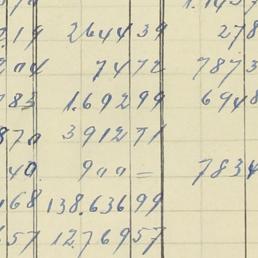 219 264439 278
7472 7873
783 1.69299 6948
870 391271
40. 900 = 7834
168 138.63699
657 12.76957